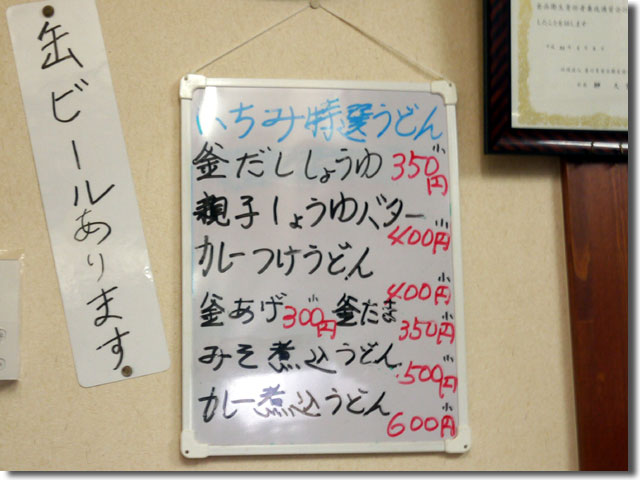 缶ビールあります
いちみ特選うどん
釜だししょうゆ 小350円
親子しょうゆバター 小400円
カレーつけうどん 小400円
釜あげ 小300円 釜たま 小350円
みそ煮込うどん 小500円
カレー煮込うどん 小600円